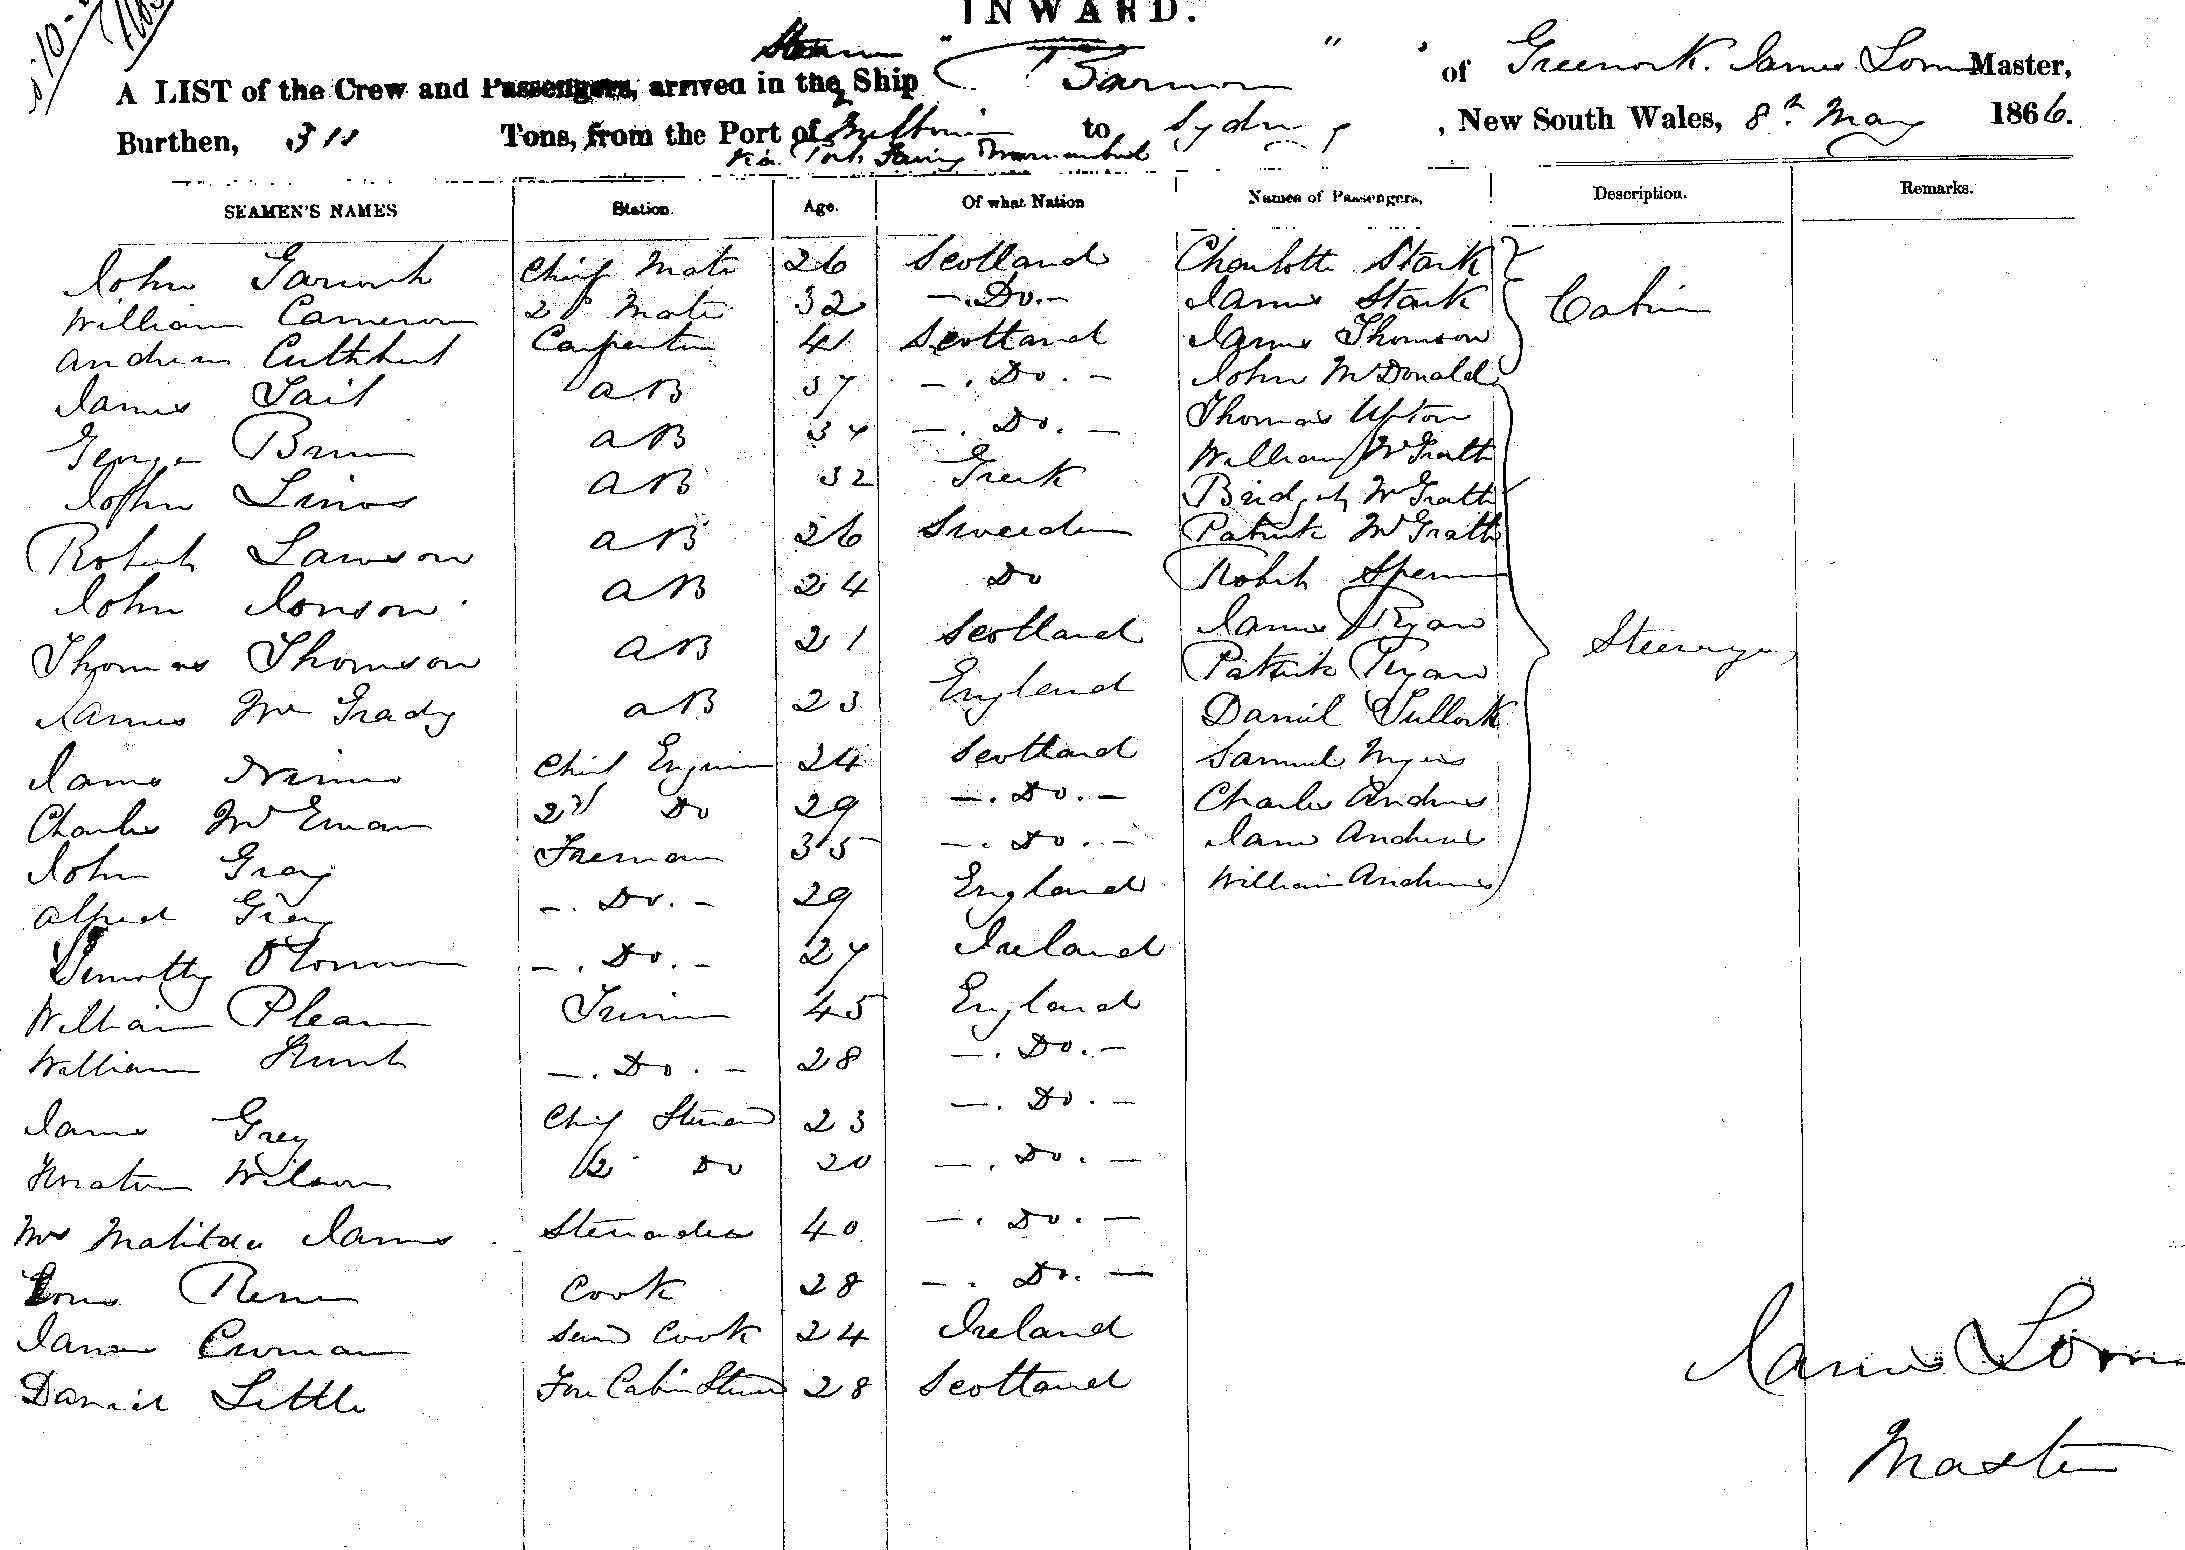 INWARD.
Steam
A LIST of the Crew and Passengers, arrived in the Ship " " of Greenock. James Master,
Burthen, 311 Tons, from the Port of Melbourne to Sydney, New South Wales, 8th May 1866.
via
SEAMEN'S NAMES Station. Age. Of what Nation Names of Passengers, Description. Remarks.
John Chief Mate 26 Scotland Charlotte Stark
William Cameron 2d Mate 32 -. Do. - James Stark Cabin
Andrew Cuthbert Carpenter 41 Scotland James Thomson
James Tait AB 37 -. Do. - John McDonald
George AB 34 -. Do. - Thomas Upton
John AB 32 Greek William McGrath
Robert Lawson AB 26 Sweeden Bridget McGrath
John Jonson AB 24 Do Patrick McGrath
Thomas Thomson AB 21 Scotland Robert
James McGrady AB 23 England James Ryan
James Chief Engineer 24 Scotland Patrick Ryan Steerage
Charles 2d Do 29 -. Do. - Daniel Tullock
John Gray Fireman 35 -. Do. - Samuel Myers
Alfred Grey -. Do. - 29 England Charles Andrews
Timothy -. Do. - 27 Ireland Jane Andrews
William Trimmer 45 England William Andrews
William -. Do. - 28 -. Do. -
James Grey Chief Steward 23 -. Do. -
Wilson 2 Do 20 -. Do. -
Mrs Matilda James Stewardess 40 -. Do. -
Cook 28 -. Do. -
James Cook 24 Ireland
Daniel Little Fore Cabin Steward 28 Scotland
James
Master